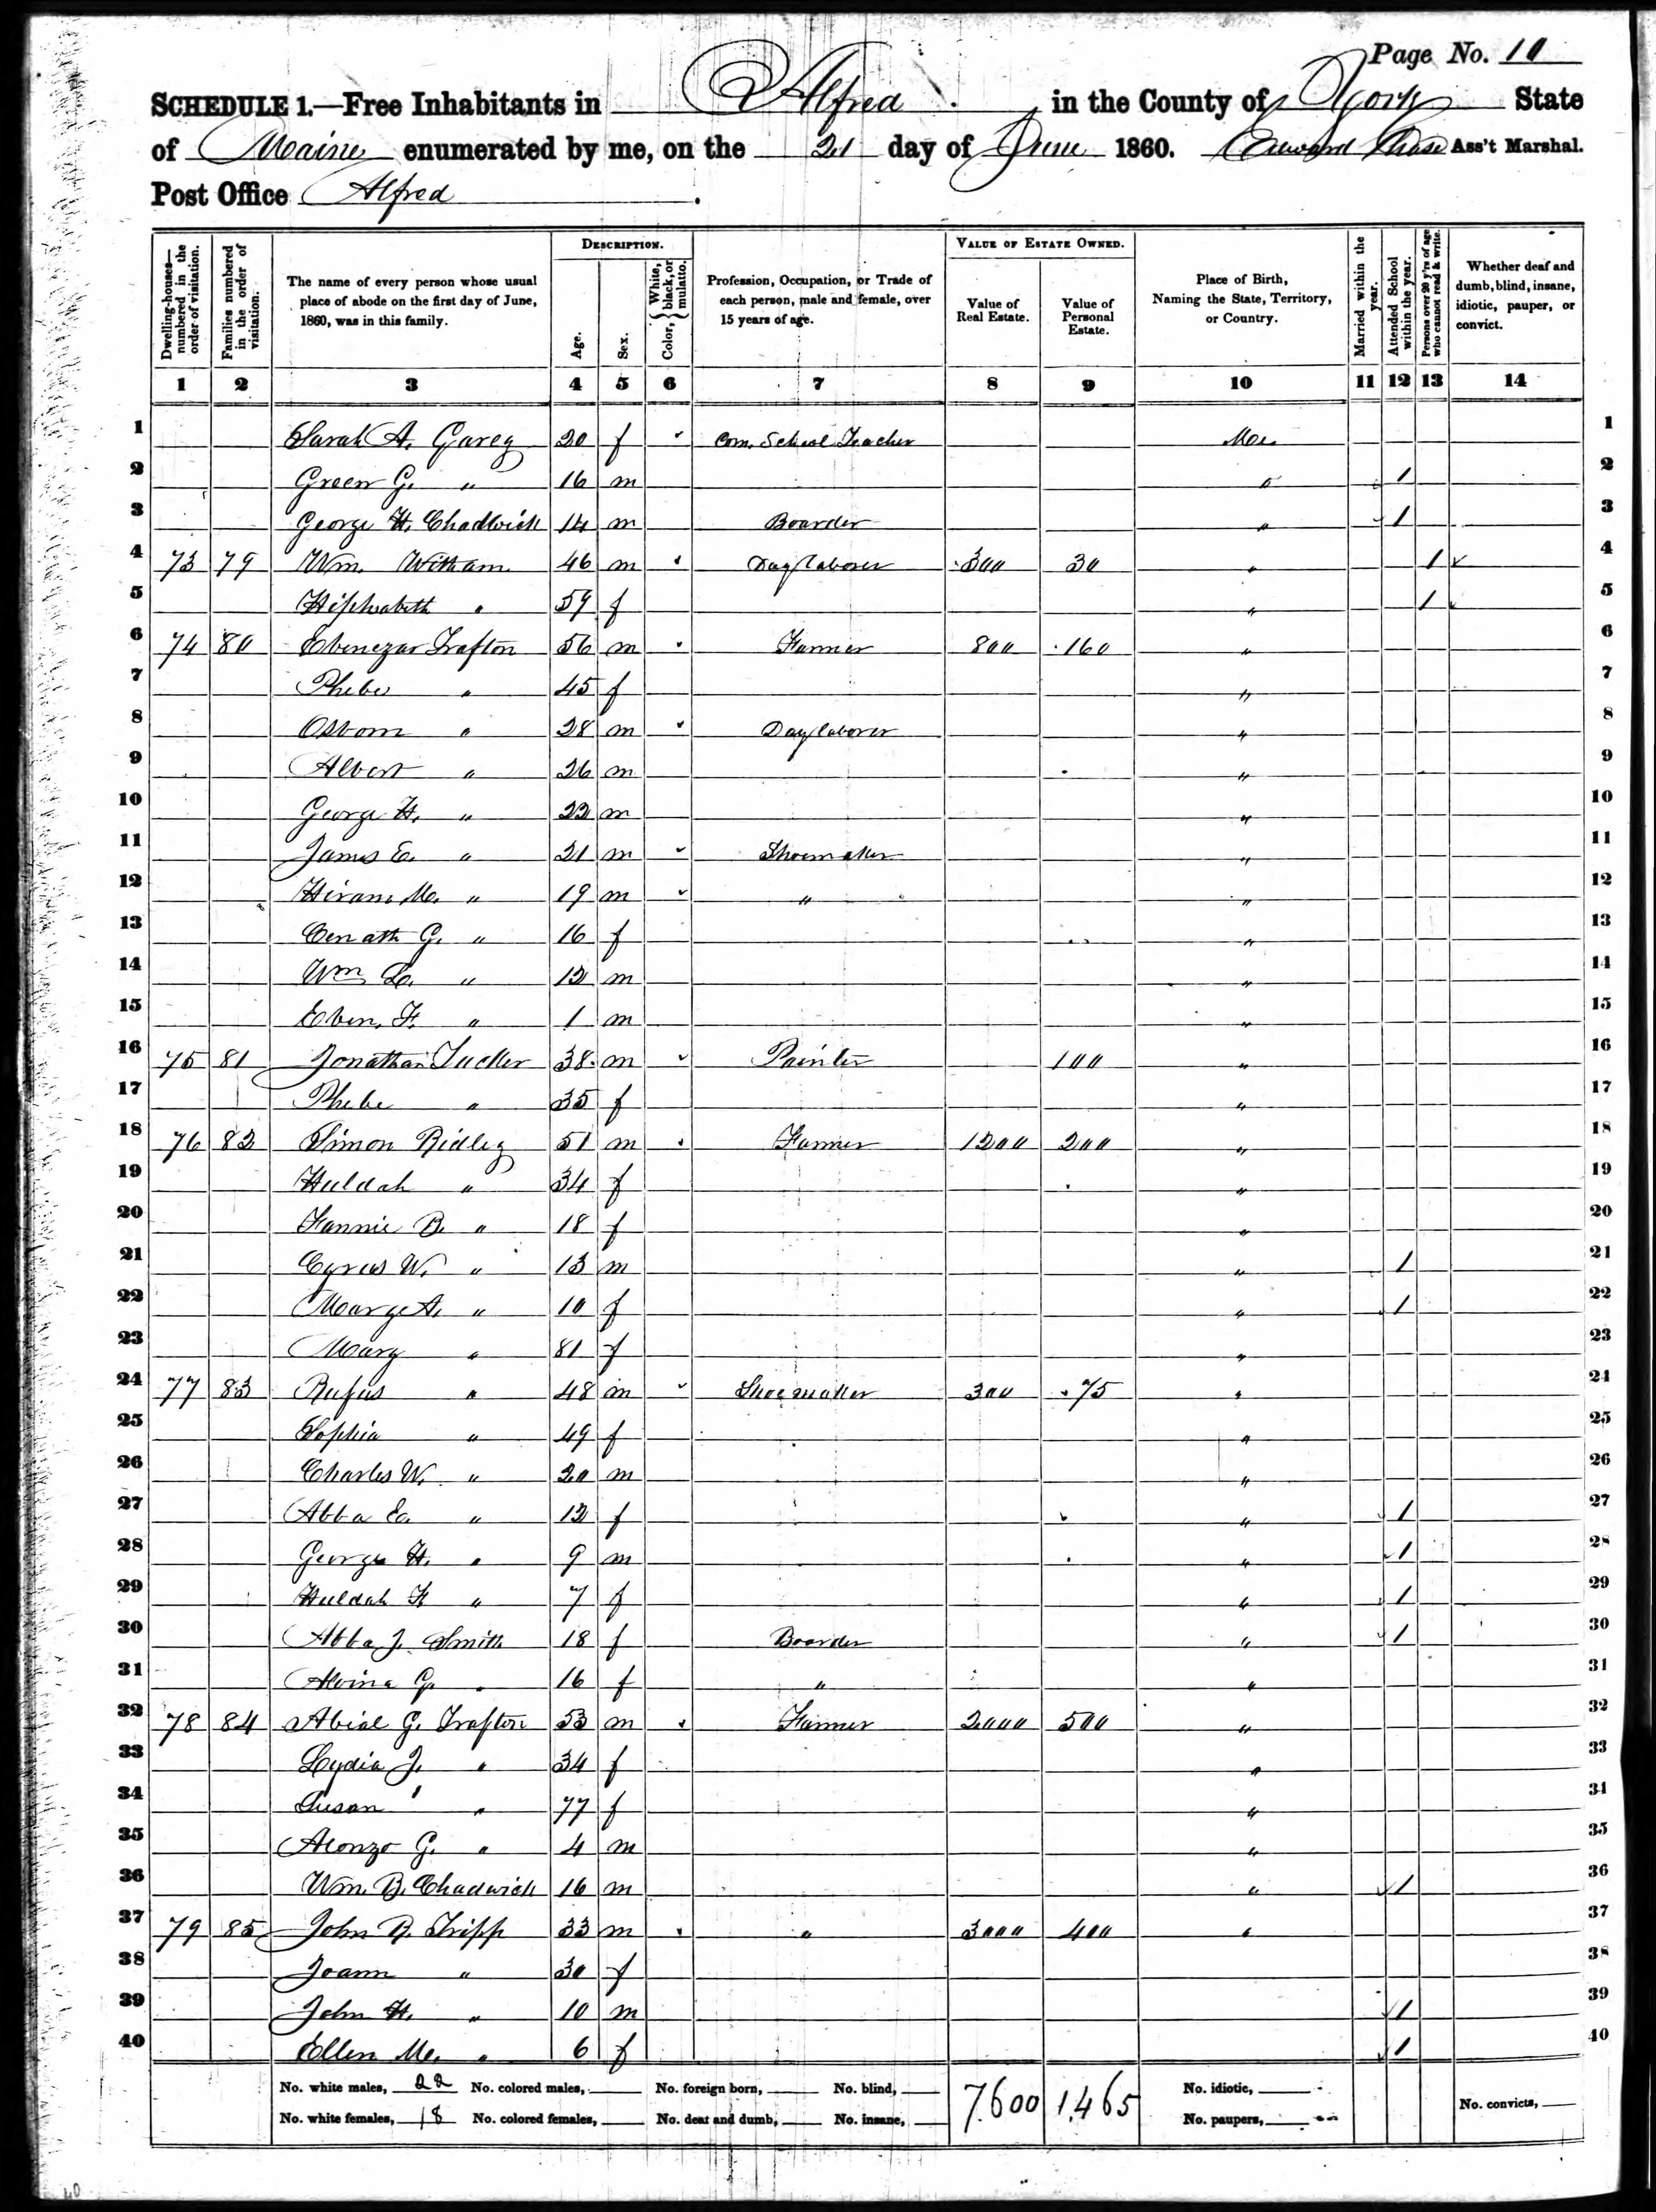 Page No. 10
SCHEDULE 1.—Free Inhabitants in Alfred in the County of York State
of Maine enumerated by me, on the 21 day of June 1860. Edward Chase Ass't Marshal.
Post Office Alfred.
DESCRIPTION. VALUE OF ESTATE OWNED.
Dwelling-houses—numbered in the order of visitation. Families numbered in the order of visitation. The name of every person whose usual place of abode on the first day of June, 1860, was in this family. Age. Sex. Color, White, black, or mulatto. Profession, Occupation, or Trade of each person, male and female, over 15 years of age. Value of Real Estate. Value of Personal Estate. Place of Birth, Naming the State, Territory, or Country. Married within the year. Attended School within the year. Persons over 20 y'rs of age who cannot read & write. Whether deaf and dumb, blind, insane, idiotic, pauper, or convict.
1 2 3 4 5 6 7 8 9 10 11 12 13 14
1 Sarah A. Garey 20 f Com. School Teacher Me. 1
2 Green G. " 16 m " 1 2
3 George H. Chadwick 14 m Boarder " 1 3
4 73 79 Wm. Witham 46 m Day laborer 300 30 " 1 4
5 " 59 f " 1 5
6 74 80 Ebenezar Trafton 56 m Farmer 800 160 " 6
7 Phebe " 45 f " 7
8 Osborn " 28 m Day laborer " 8
9 Albert " 26 m " 9
10 George H. " 22 m " 10
11 James E. " 21 m Shoemaker " 11
12 Hiram M. " 19 m " " 12
13 G. " 16 f " 13
14 Wm L. " 12 m " 14
15 Eben. F. " 1 m " 15
16 75 81 Jonathan Tucker 38 m Painter 100 " 16
17 Phebe " 35 f " 17
18 76 82 Simon Ridley 51 m Farmer 1200 200 " 18
19 Huldah " 34 f " 19
20 Fannie B. " 18 f " 20
21 Cyrus W. " 13 m " 1 21
22 Mary A. " 10 f " 1 22
23 Mary " 81 f " 23
24 77 83 Rufus " 48 m Shoemaker 300 75 " 24
25 Sophia " 49 f " 25
26 Charles W. " 20 m " 26
27 Abba E. " 12 f " 1 27
28 George H. " 9 m " 1 28
29 Huldah F. " 7 f " 1 29
30 Abba J. Smith 18 f Boarder " 1 30
31 Alvina G. " 16 f " " 31
32 78 84 Abial G. Trafton 53 m Farmer 2000 500 " 32
33 Lydia J. " 34 f " 33
34 Susan " 77 f " 34
35 Alonzo G. " 4 m " 35
36 Wm. B. Chadwick 16 m " 1 36
37 79 85 John B. Tripp 33 m " 3000 400 " 37
38 Joann " 30 f 38
39 John H. " 10 m 1 39
40 Ellen M. " 6 f 1 40
No. white males, 22 No. colored males, No. foreign born, No. blind, 7.600 1.465 No. idiotic,
No. white females, 18 No. colored females, No. deaf and dumb, No. insane, No. paupers, No. convicts,